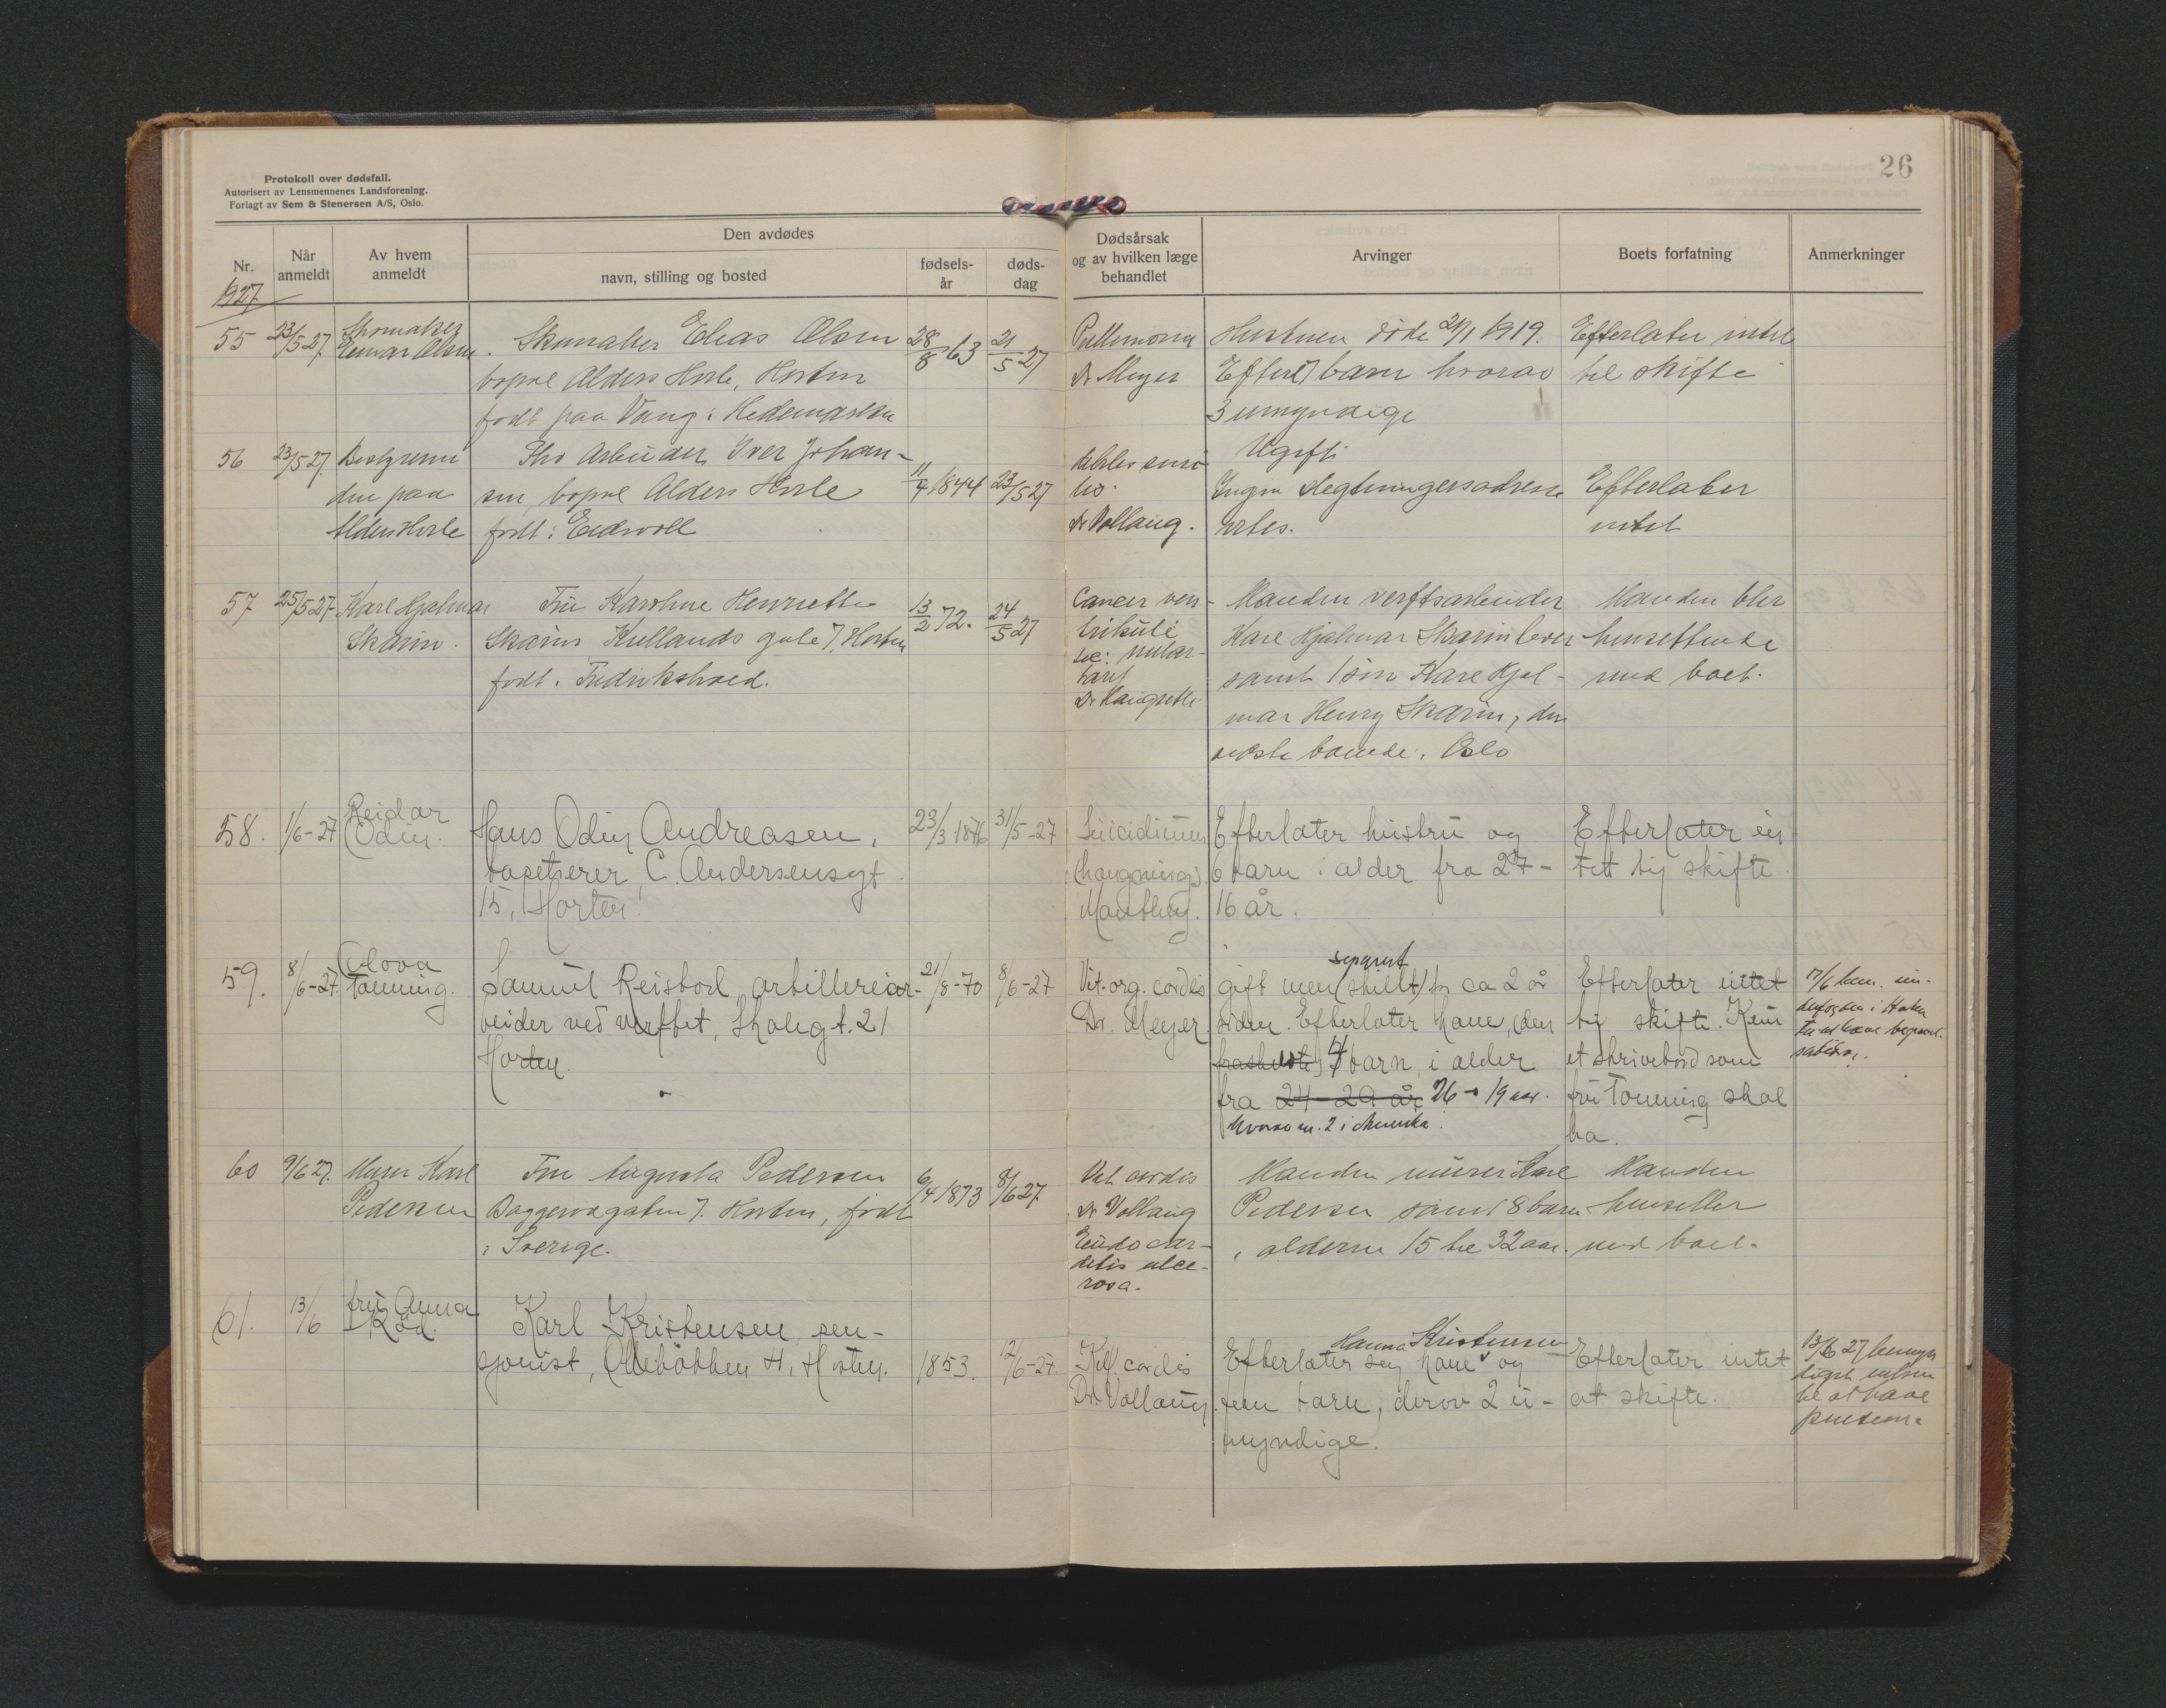 Protokoll over dødsfall.
Autorisert av Lensmennenes Landsforening.
Forlagt av Sem & Stenersen A/S, Oslo.
26
Nr.
Når anmeldt
Av hvem anmeldt
Den avdødes
navn, stilling og bosted
fødsels-år
døds-dag
Dødsårsak og av hvilken læge behandlet
Arvinger
Boets forfatning
Anmerkninger
1927
55
23/5 27
Skomaker
Einar Olsen
Skomaker Elias Olsen
bopæl Alders Hvile, Horten
født paa Vang i Hedemarken
28/8 63
21/5 27
Dr Meyer
Hustruen døde 21/1 1919.
Efterl 7 barn hvorav
3 umyndige
Efterlater intet
til skifte
56
23/5 27
Bestyrerin
den paa
Alders Hvile
Fhv Arbeider Iver Johan-
sen, bopæl Alders Hvile
født i Eidsvoll
11/4 1844
23/5 27
Dr Vollaug.
Ugift
Ingen slegtningers adresse
vites.
Efterlater
intet
57
25/5 27
Karl Hjalmar
Skarin.
Fru Karoline Henriette
Skarin, Kullands gate 7, Horten
født i Fredrikshald.
13/2 72.
24/5 27
Cancer ven-
trikuli
Manden verftsarbeider
Karl Hjalmar Skarin lever
samt 1 søn Karl Hjal-
mar Henry Skarin, den
sidste boende i Oslo
Manden blir
hensittende
med boet.
58.
1/6-27
Reidar
Odin.
Hans Odin Andreasen,
tapetserer, C. Andersensgt.
15, Horten.
23/3 1876
31/5-27
Suicidium
(hængning).
Efterlater hustru og
6 barn i alder fra 27-
16 år.
Efterlater in-
tett til skifte.
59.
8/6-27.
Tønning.
Samuel Reisbol, artilleriar-
beider ved verftet, Skolegt. 21
Horten.
21/8-70
8/6-27
Vit. org. cordis
Dr. Meyer
separert
gift men (skillt) for ca 2 år
siden. Efterlater hane, (den
fraskillte) 4 barn, i alder
fra 24-29 år 26-19 aar.
hvorav m. 2 i Amerika.
Efterlater intet
til skifte. Kun
et skrivebord som
fru Tønning skal
ha.
60
9/6 27.
Murer Karl
Pedersen
Fru Augusta Pedersen
Baggerødgaten 7. Horten, født
i Sverige.
6/4 1873
8/6 27
Vit. cordis
Dr Vollaug
Endocar-
ditis ulce-
rosa.
Manden murer Karl
Pedersen samt 8 barn
i alderen 15 til 32 aar.
Manden
hensitter
med boet.
61.
13/6
fru Anna
Rød.
Karl Kristensen, pen-
sjonist, Ollebakken 4, Horten.
1853.
12/6-27.
cordis
Dr. Vollaug.
Hanna Kristensen
Efterlater seg kone og
fem barn, derav 2 u-
myndige.
Efterlater intet
at skifte.
13/6 27 bemyn
diget enken
til at hæve
pensjon.